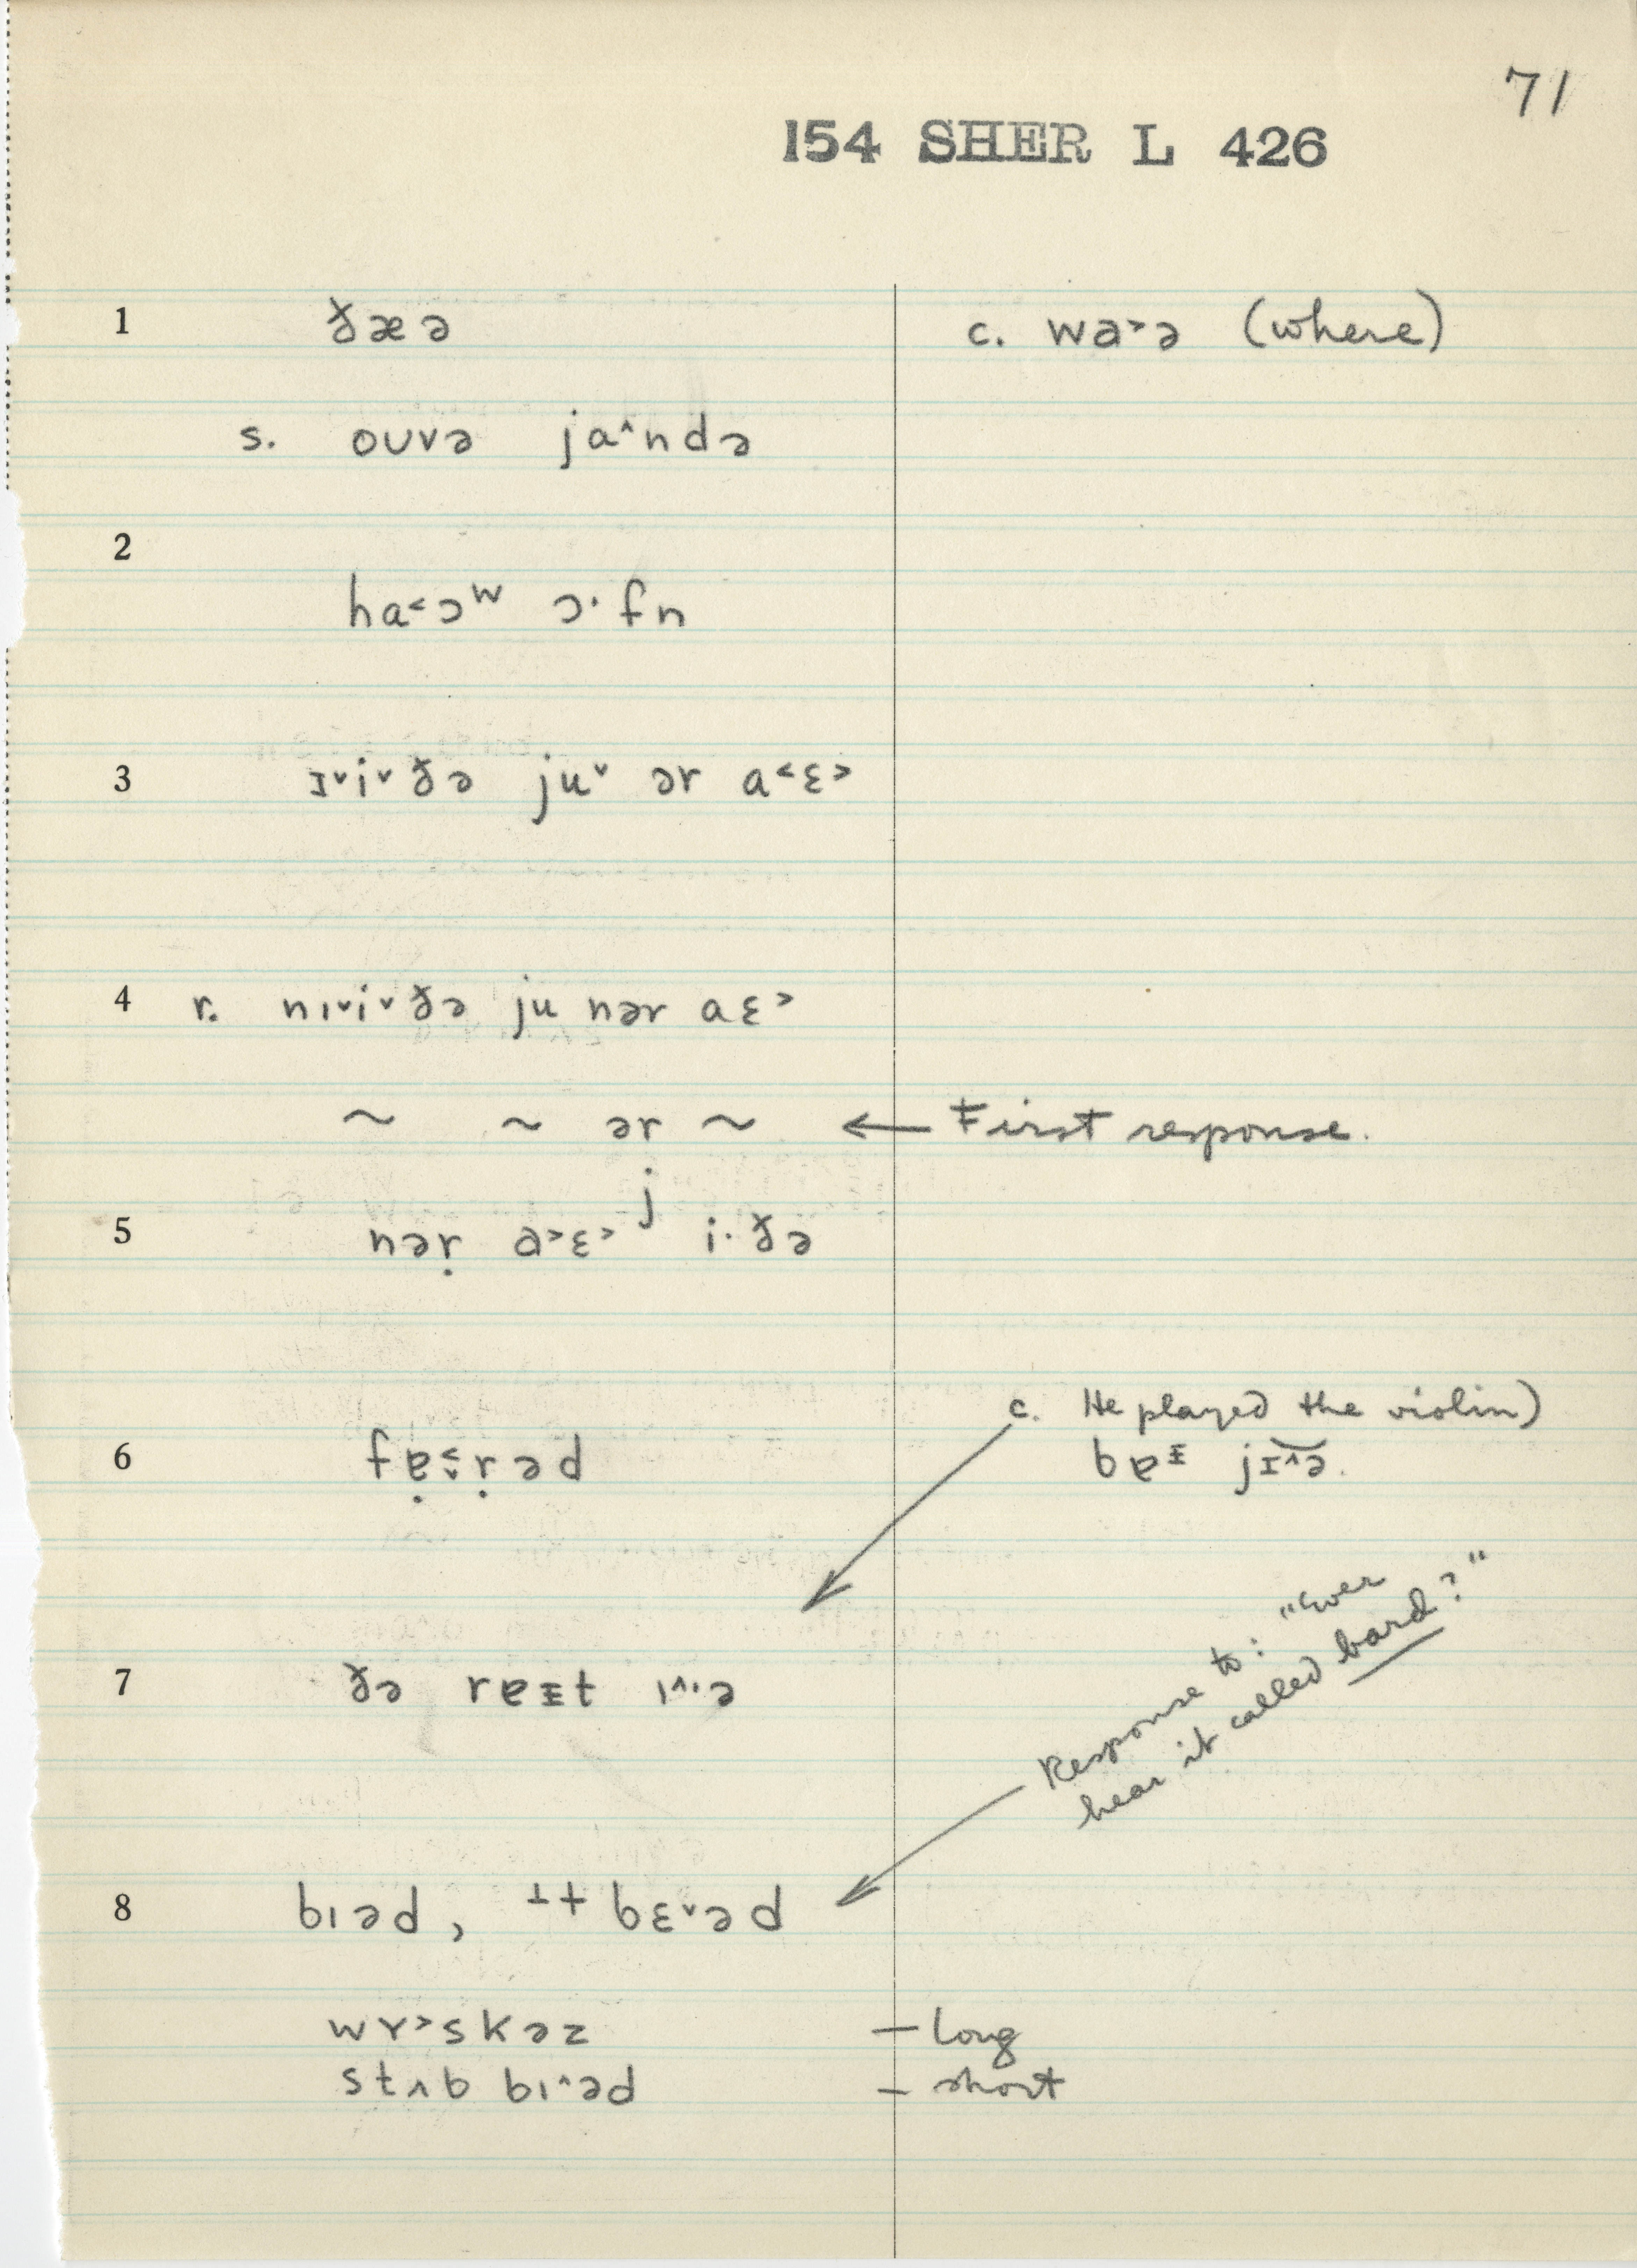 71
154 SHER L 426
1 ðæə c. wa˃ə (where)
s. oʊvə ja˄ndə
2
ha˂ɔʷ ɔ·fn
3 ɪ˅i˅ðə ju˅ ər a˂ɛ˃
4 r. nɪ˅i˅ðə ju nər aɛ˃
~ ~ ər ~ ← First response.
5 nəṛ a˃ɛ˃ʲ i·ðə
c. He played the violin)
6
7 ðə rɐᵻt ɪ˄·ə
Response to: "Ever
hear it called bard?"
8 bɪəd, ⊥† bɛ˅əd
wɤ˃skəz – long
stʌb bɪ˄əd – short